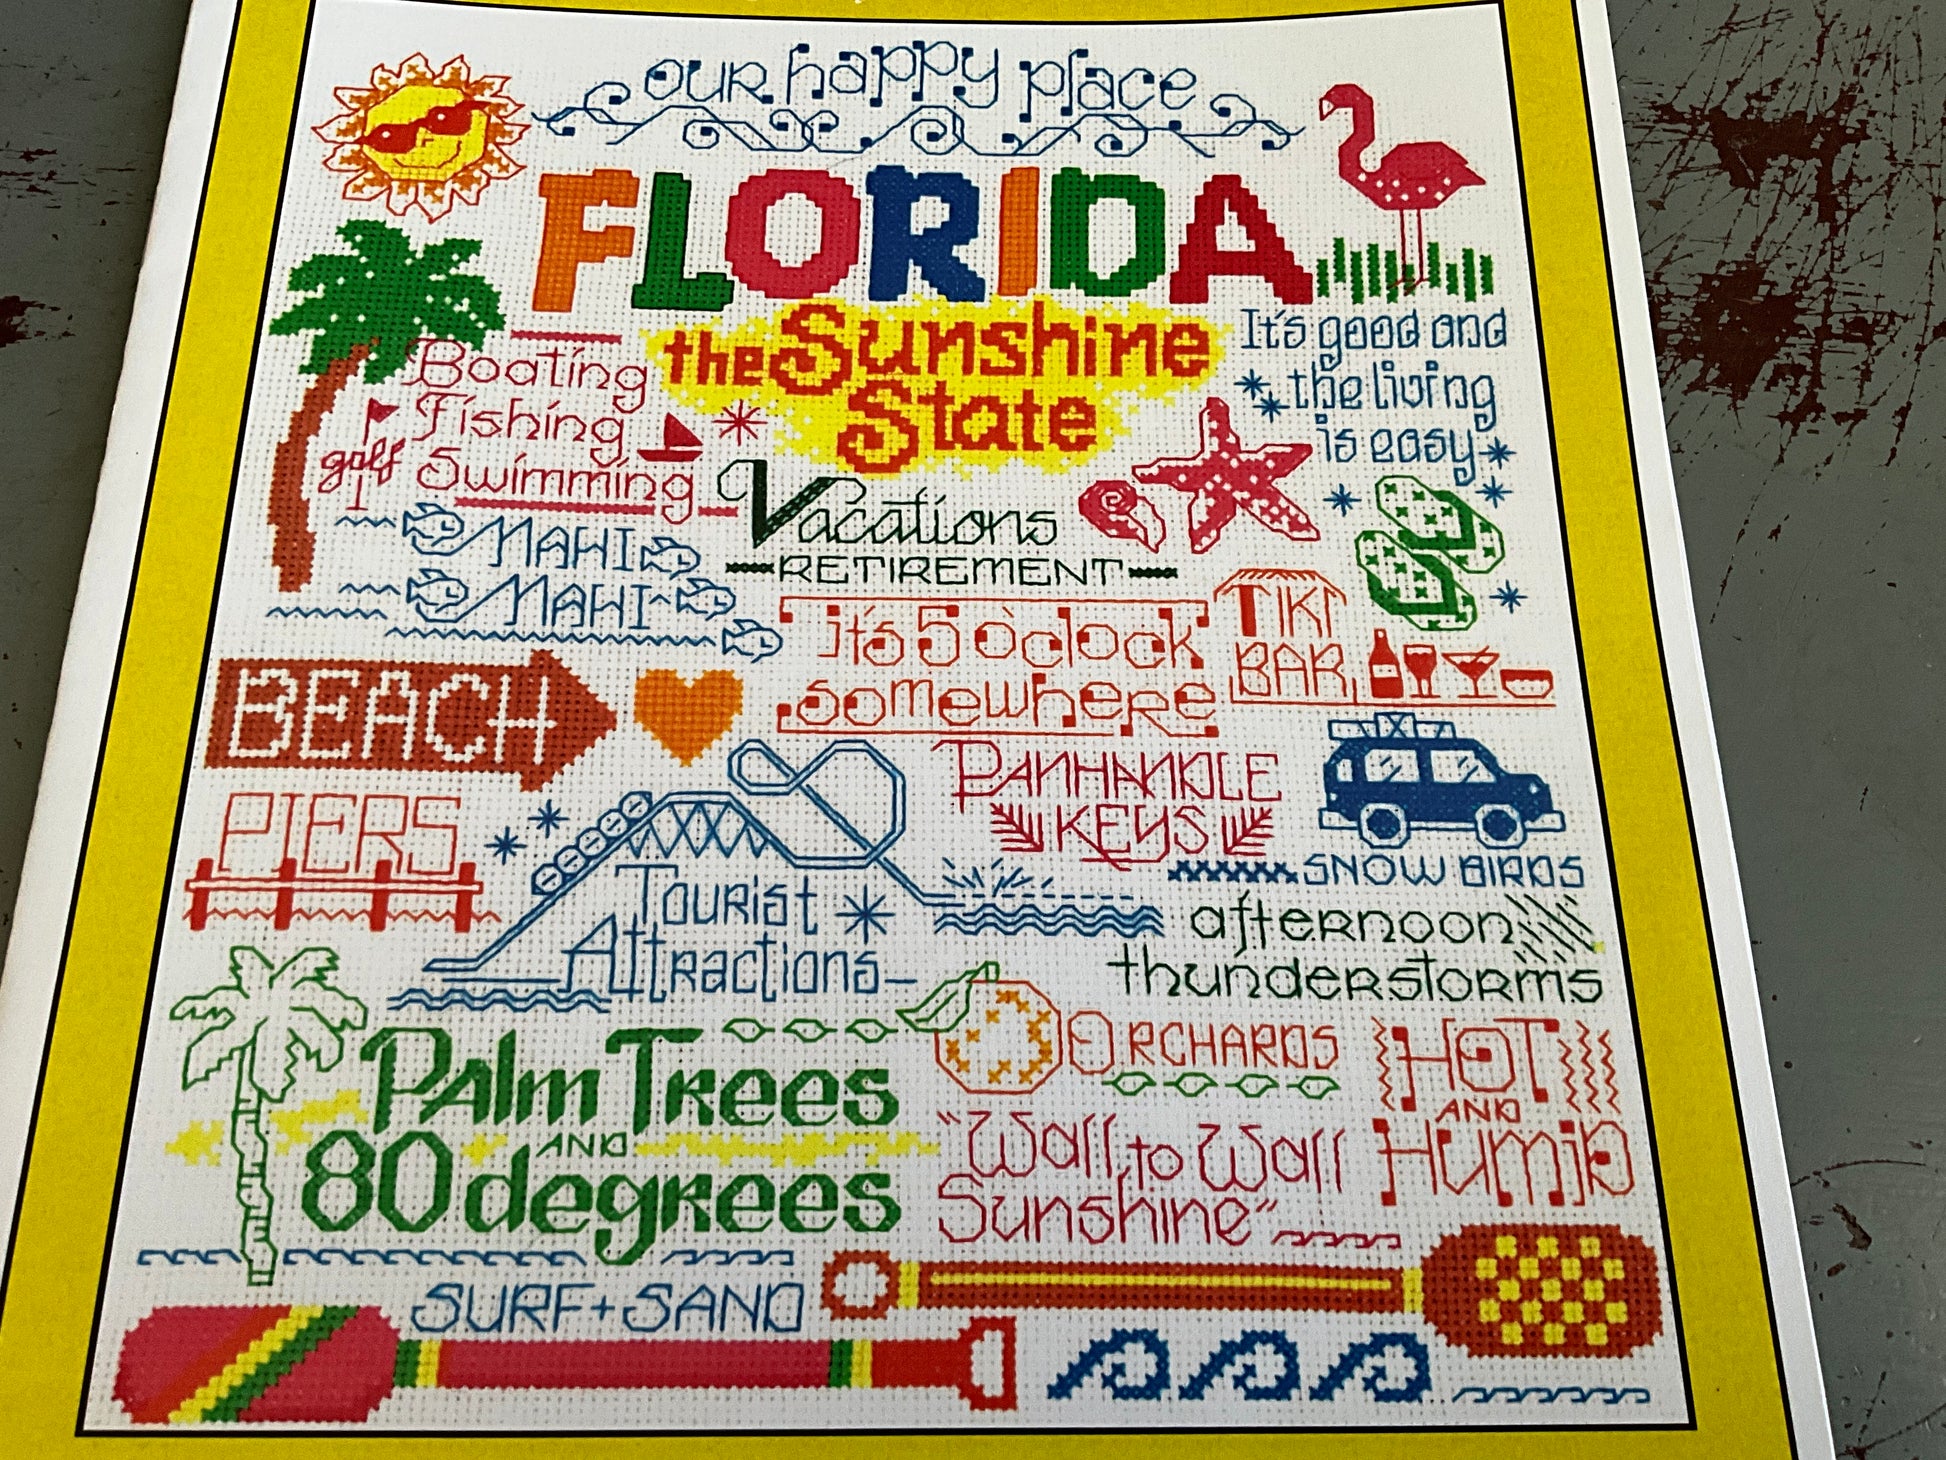 our happy place
FLORIDA
the Sunshine
State
It's good and
the living
is easy
Boating
Fishing
golf
Swimming
Vacations
RETIREMENT
MAHI
MAHI
it's 5 o'clock
somewhere
TIKI
BAR
BEACH
PANHANDLE
KEYS
SNOW BIRDS
PIERS
Tourist
Attractions
afternoon
thunderstorms
Palm Trees
AND
80 degrees
ORCHARDS
HOT
AND
HUMID
"Wall to Wall
Sunshine"
SURF + SAND